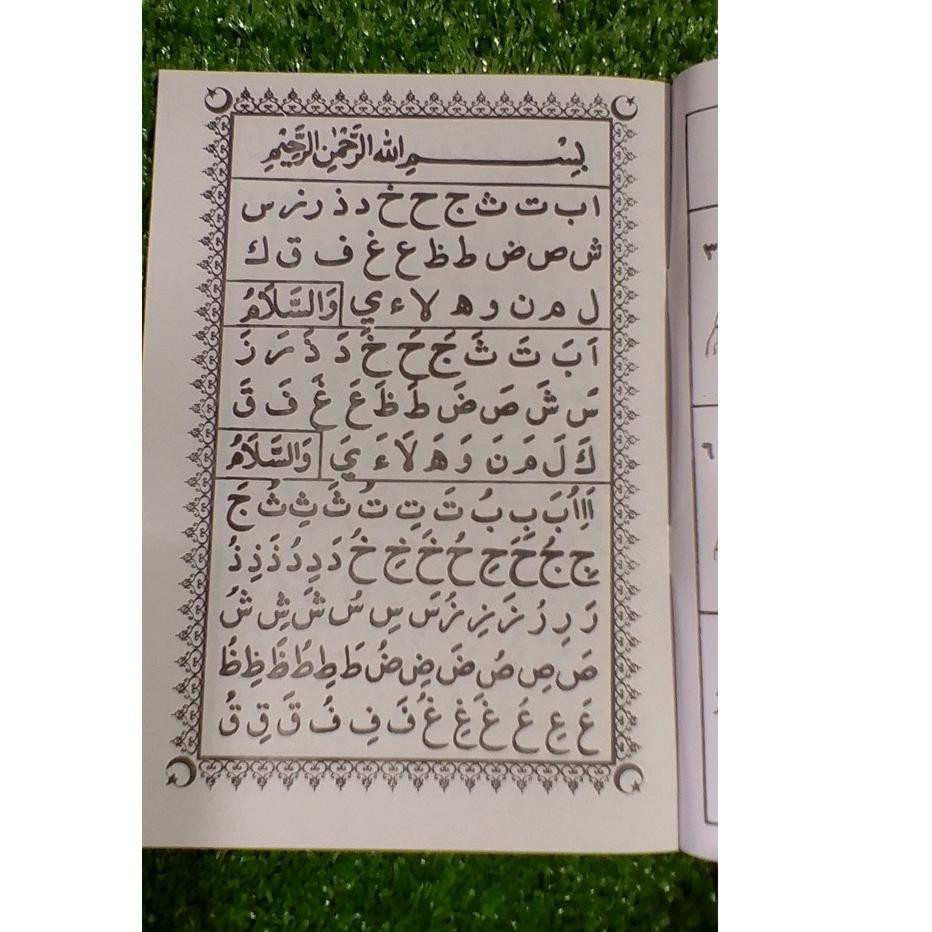 بِسْمِ اللهِ الرَّحْمٰنِ الرَّحِيْمِ
ا ب ت ث ج ح خ د ذ ر ز س
ش ص ض ط ظ ع غ ف ق ك
ل م ن و ه لا ء ي وَالسَّلَامُ
اَ بَ تَ ثَ جَ حَ خَ دَ ذَ رَ زَ
سَ شَ صَ ضَ طَ ظَ عَ غَ فَ قَ
كَ لَ مَ نَ وَ هَ لَا ءَ يَ وَالسَّلَامُ
اَ اِ اُ بَ بِ بُ تَ تِ تُ ثَ ثِ ثُ جَ
جِ جُ حَ حِ حُ خَ خِ خُ دَ دِ دُ ذَ ذِ ذُ
رَ رِ رُ زَ زِ زُ سَ سِ سُ شَ شِ شُ
صَ صِ صُ ضَ ضِ ضُ طَ طِ طُ ظَ ظِ ظُ
عَ عِ عُ غَ غِ غُ فَ فِ فُ قَ قِ قُ
٣
٦